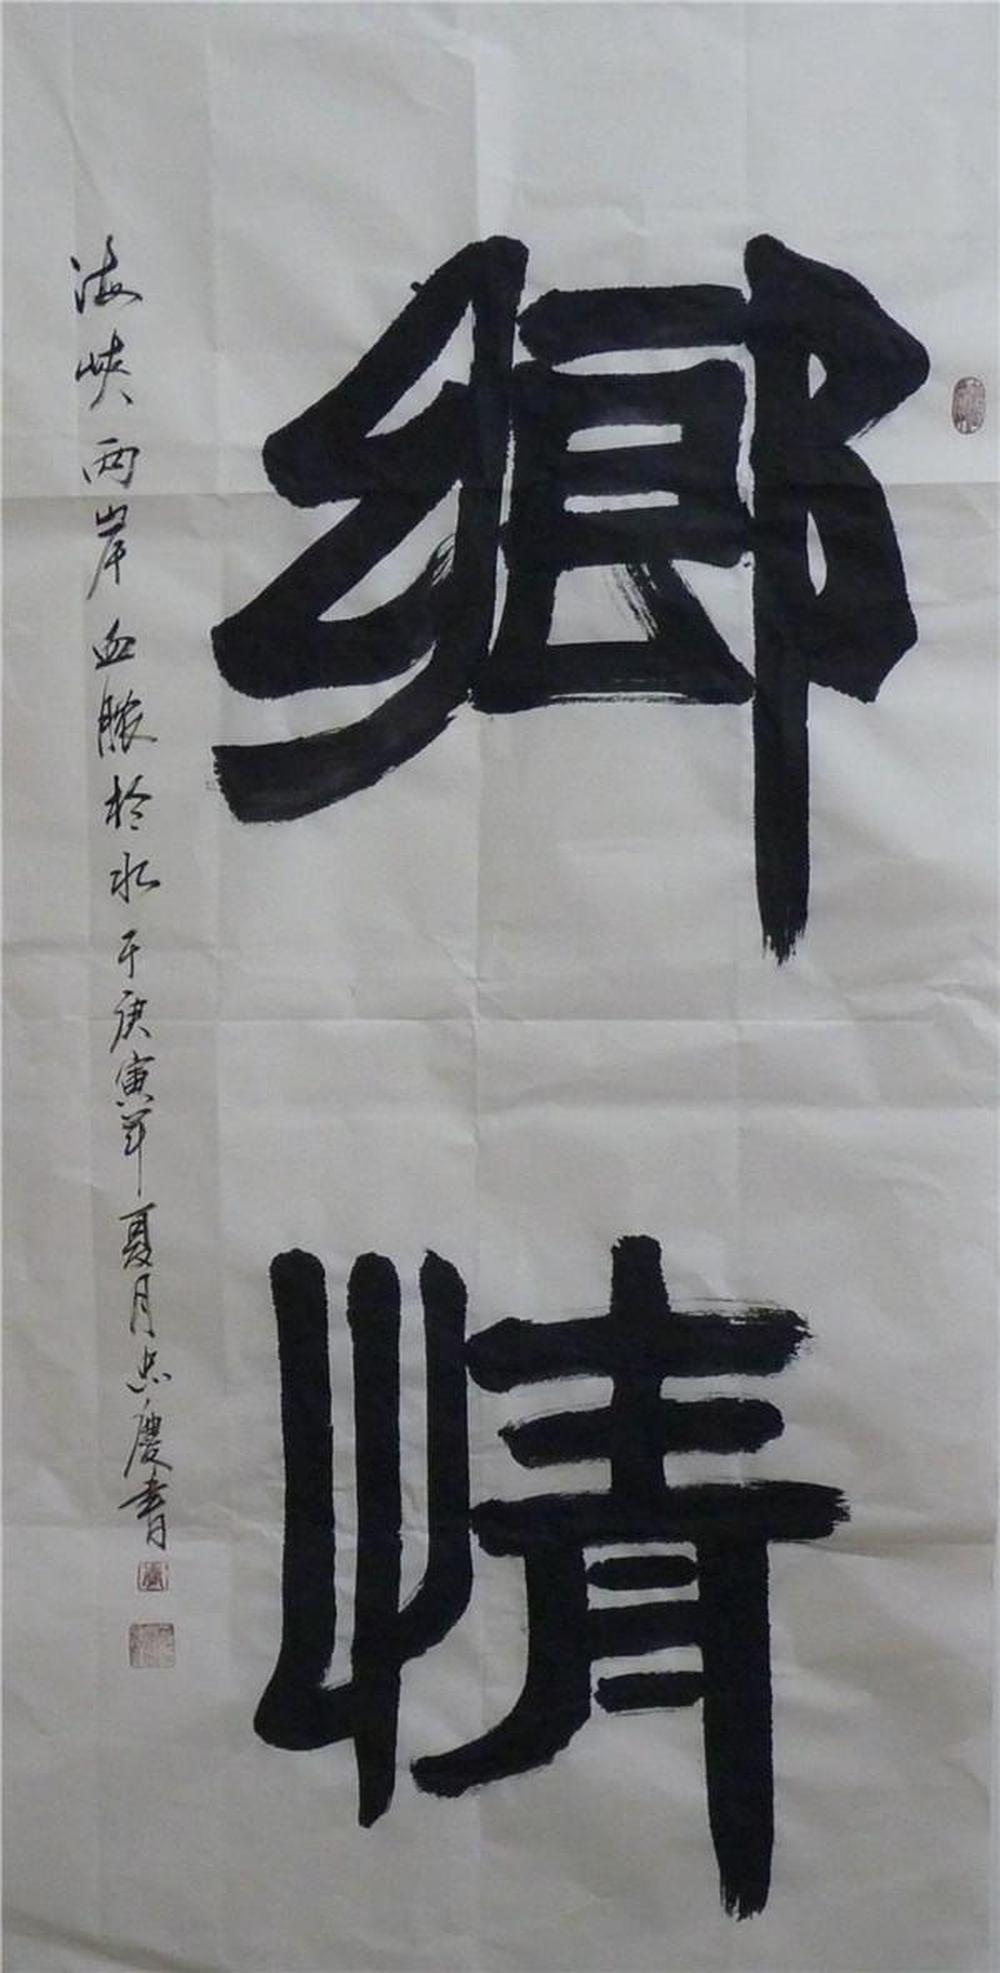 鄉情
海峡两岸血脓於水于庚寅年夏月忠慶书